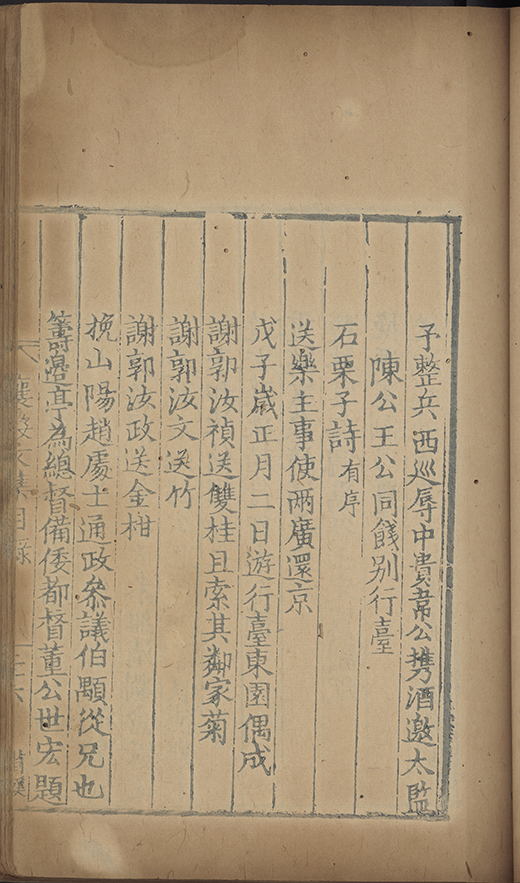 予整兵西巡辱中貴韋公携酒邀太監
陳公王公同餞别行臺
石栗子詩有序
送樂主事使兩廣還京
戊子歲正月二日遊行臺東園偶成
謝郭汝禎送雙桂且索其鄰家菊
謝郭汝文送竹
謝郭汝政送金柑
挽山陽趙處士通政叅議伯顒從兄也
籌邊亭為總督備倭都督董公世宏題
襄毅文集目錄